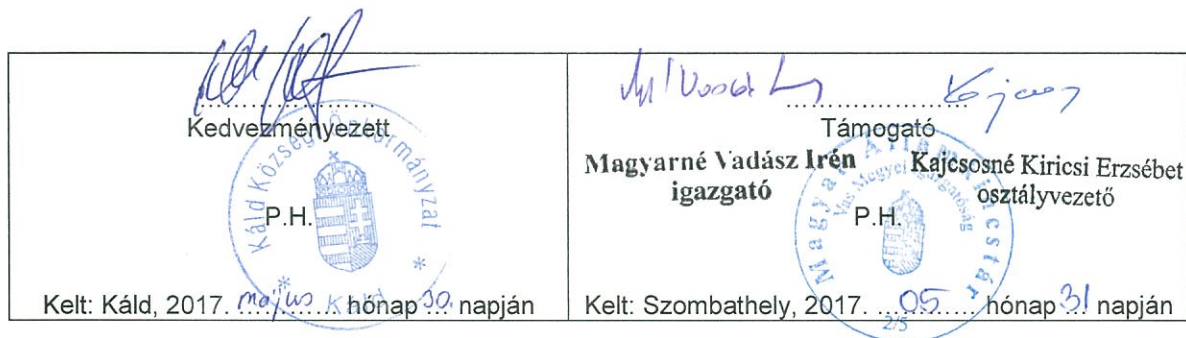 Kedvezményezett
Káld Község Önkormányzat
* Káld *
P.H.
Kelt: Káld, 2017. május hónap 30. napján
Támogató
Magyarné Vadász Irén
igazgató
Kajcsosné Kiricsi Erzsébet
osztályvezető
Magyar Államkincstár
Vas Megyei Igazgatóság
P.H.
2/5
Kelt: Szombathely, 2017. 05 hónap 31 napján